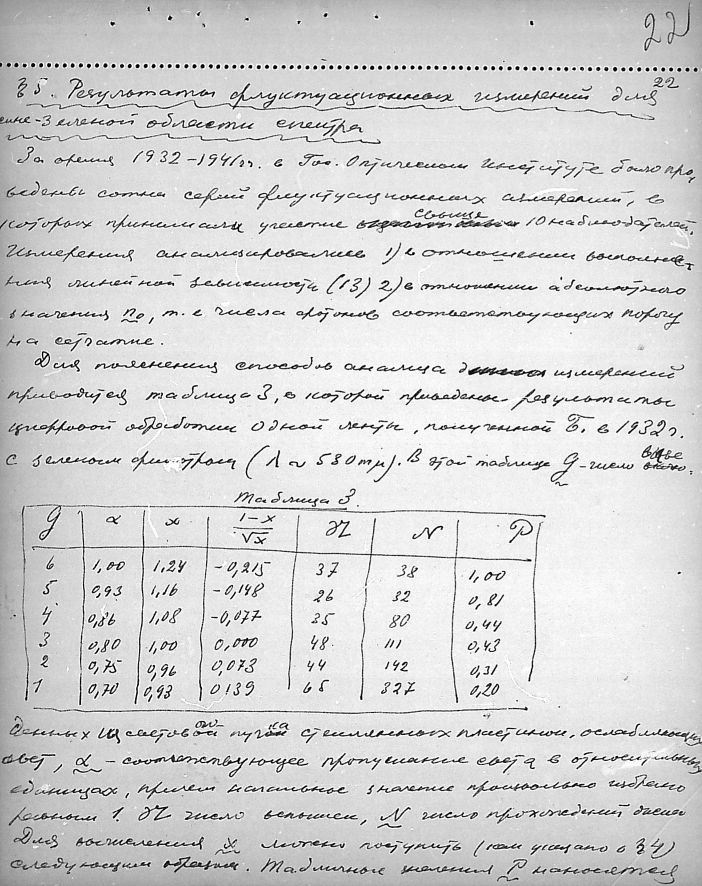 22
22
§5. Результаты флуктуационных измерений для
сине-зеленой области спектра
За время 1932–1941 гг. в Гос. Оптическом Институте было про-
ведены сотни серий флуктуационных измерений, в
которых принимали участие свыше 10 наблюдателей.
Измерения анализировались 1) в отношении выполне-
ния линейной зависимости (13) 2) в отношении абсолютного
значения n₀, т. е числа фотонов соответствующих порогу
на сетчатке.
Для пояснения способов анализа измерений
приводится таблица 3, в которой приведены результаты
цифровой обработки одной ленты, полученной Б. в 1932 г.
с зеленым фильтром (λ ~ 530 mμ). В этой таблице g – число введе-
Таблица 3.
g α x 1–x/√x 𝔑 N P
6 1,00 1,24 -0,215 37 38 1,00
5 0,93 1,16 -0,148 26 32 0,81
4 0,86 1,08 -0,077 35 80 0,44
3 0,80 1,00 0,000 48 111 0,43
2 0,75 0,96 0,073 44 142 0,31
1 0,70 0,93 0139 65 327 0,20
денных в световой пучок стеклянных пластинок, ослабляющих
свет, α – соответствующее пропускание света в относительных
единицах, причем начальное значение произвольно избрано
равным 1. 𝔑 число вспышек, N число прохождений диска
Для вычисления x можно поступить (как указано в §4)
следующим образом. Табличные значения P наносятся